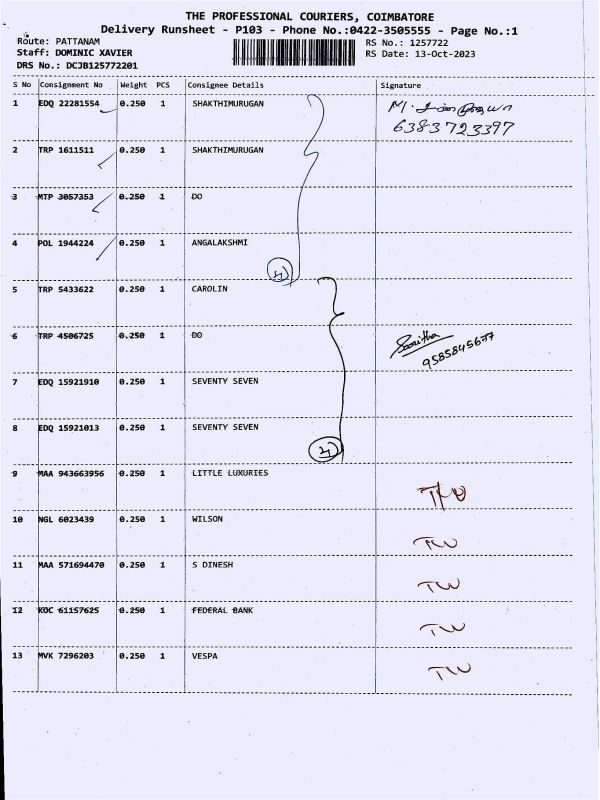 THE PROFESSIONAL COURIERS, COIMBATORE
Delivery Runsheet - P103 - Phone No.:0422-3505555 - Page No.:1
Route: PATTANAM
RS No.: 1257722
Staff: DOMINIC XAVIER
RS Date: 13-Oct-2023
DRS No.: DCJB125772201
S No Consignment No Weight PCS Consignee Details Signature
1 EDQ 22281554 0.250 1 SHAKTHIMURUGAN
6383723397
2 TRP 1611511 0.250 1 SHAKTHIMURUGAN
3 MTP 3057353 0.250 1 DO
4 POL 1944224 0.250 1 ANGALAKSHMI
5 TRP 5433622 0.250 1 CAROLIN
6 TRP 4506725 0.250 1 DO
7 EDQ 15921910 0.250 1 SEVENTY SEVEN
8 EDQ 15921013 0.250 1 SEVENTY SEVEN
9 MAA 943663956 0.250 1 LITTLE LUXURIES
10 NGL 6023439 0.250 1 WILSON
11 MAA 571694470 0.250 1 S DINESH
12 KOC 61157625 0.250 1 FEDERAL BANK
13 MVK 7296203 0.250 1 VESPA